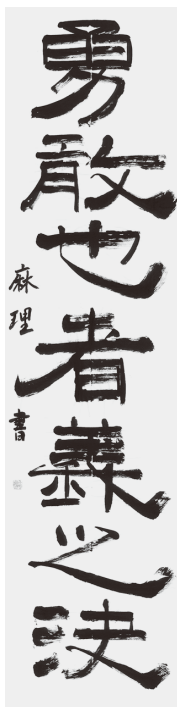 勇敢也者義之決
麻理書